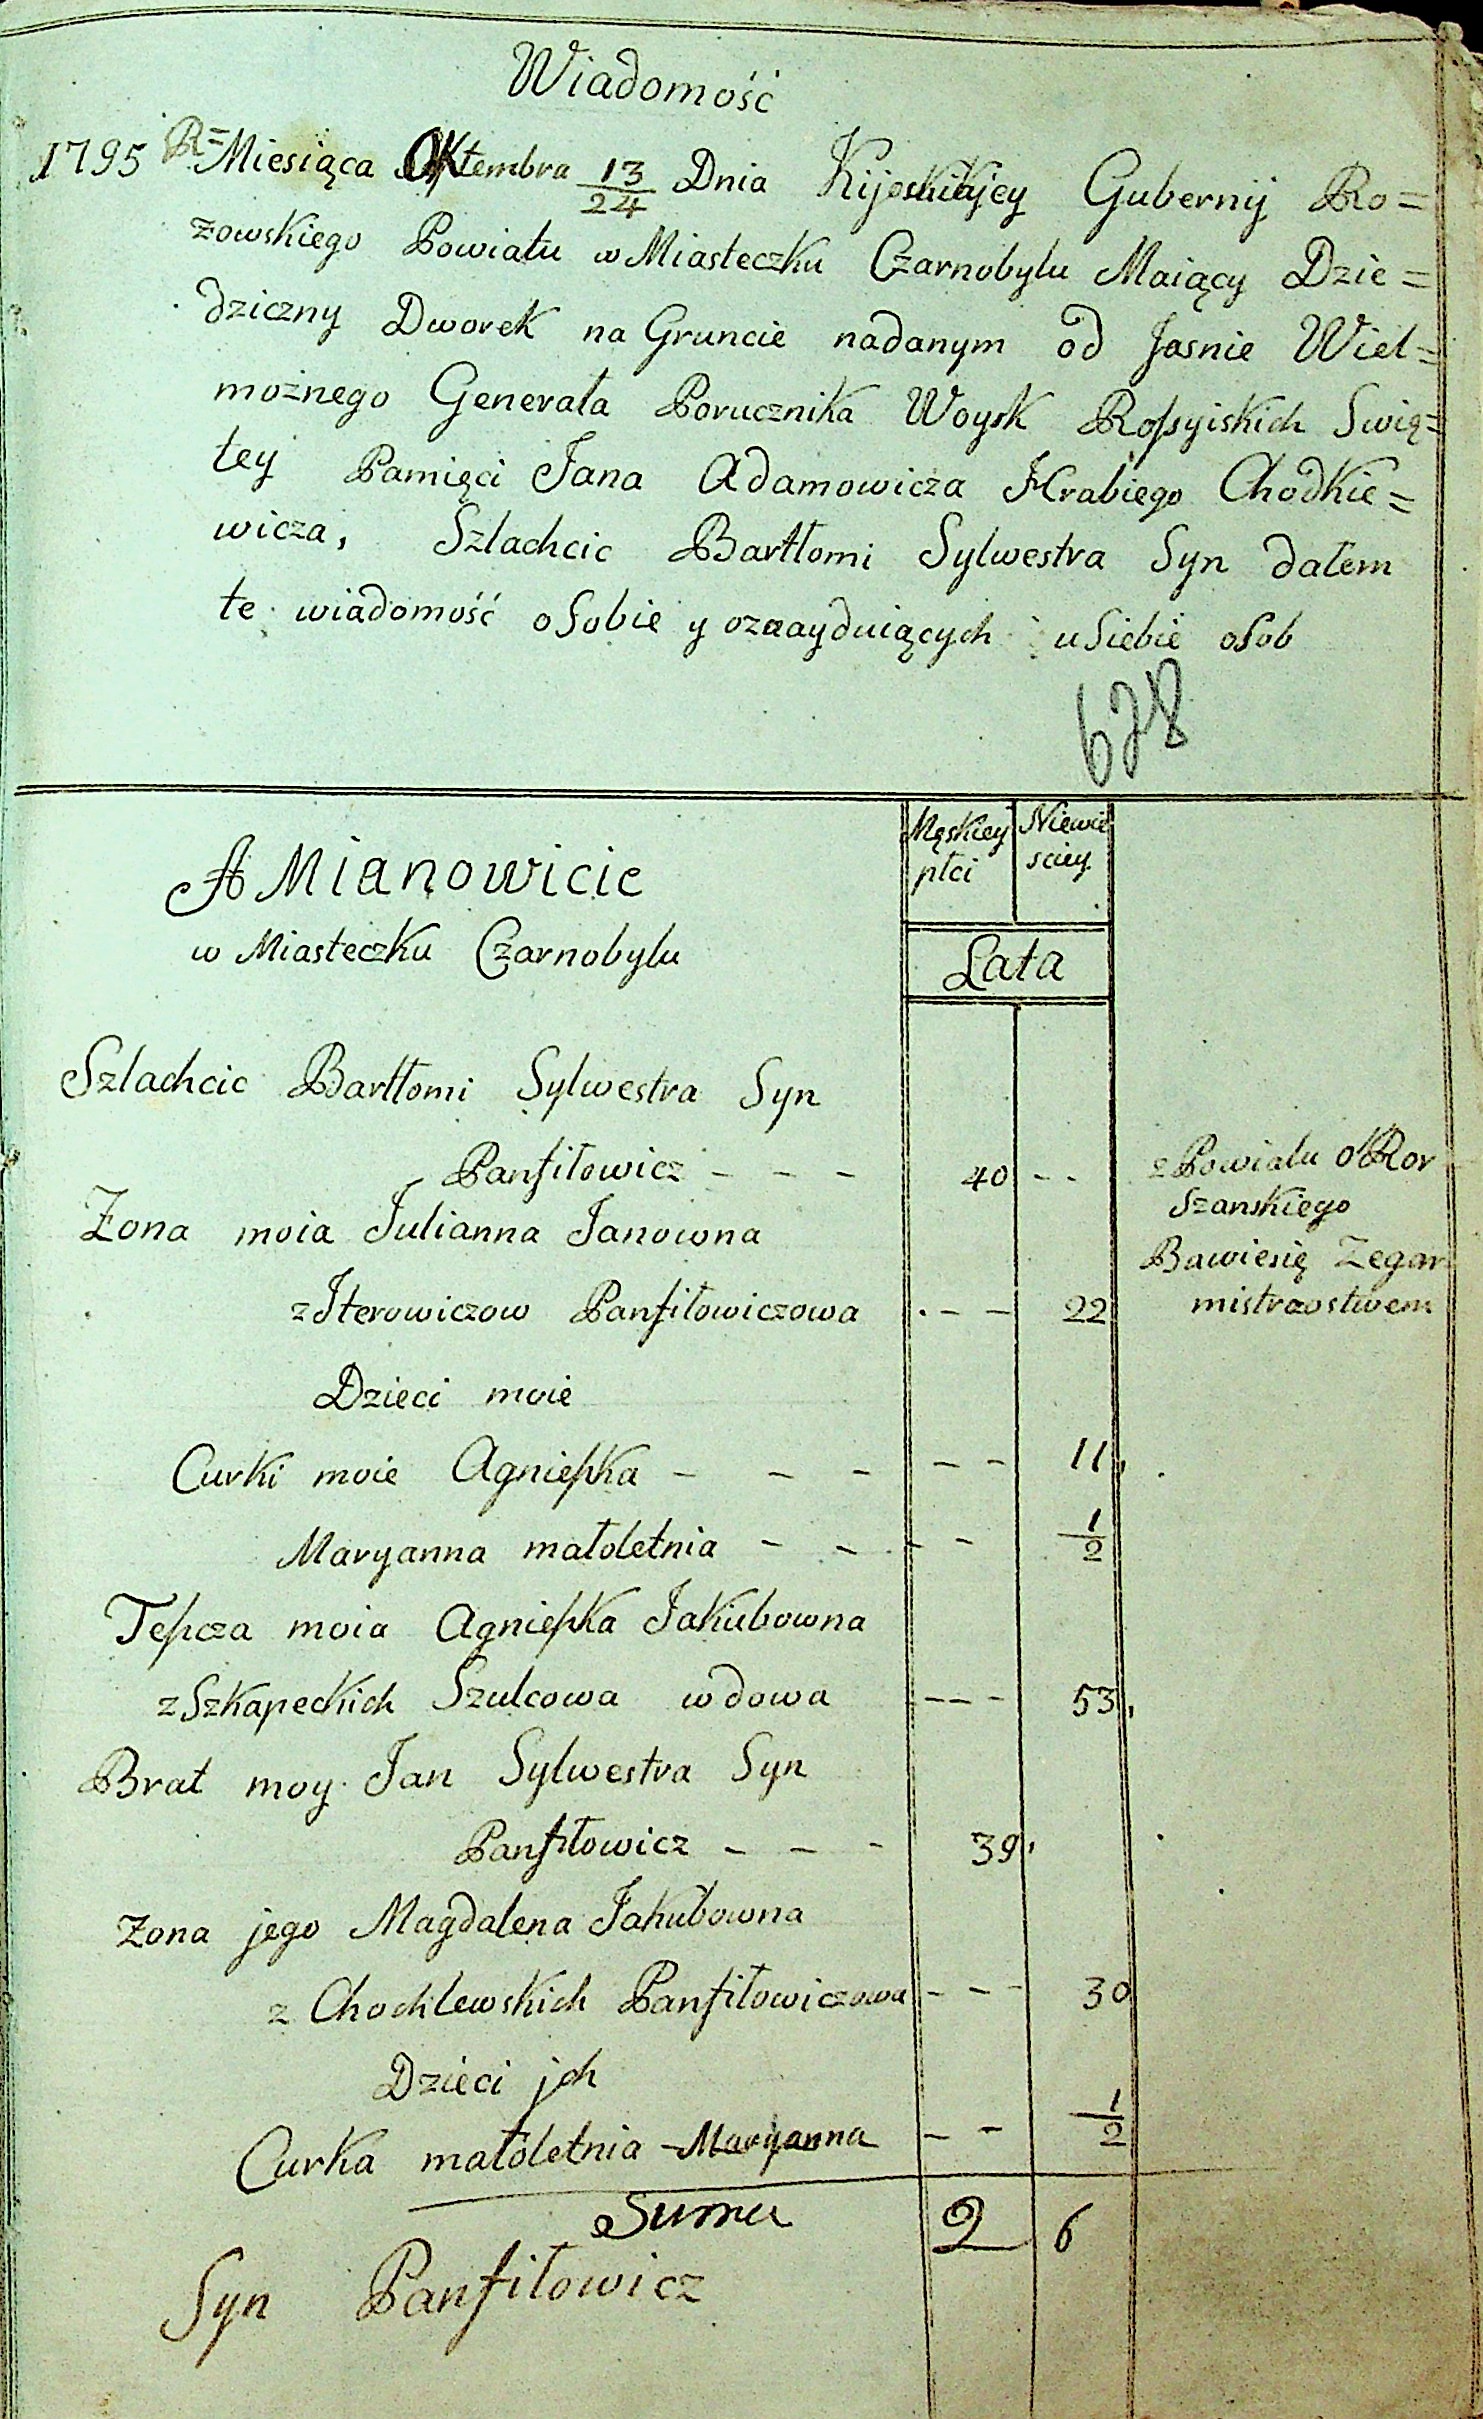 Wiadomość
1795 R= Miesiąca Oktembra 13/24 Dnia Kijoskieyjey Gubernij Ro=
zowskiego Powiatu w Miasteczku Czarnobylu Maiący Dzie=
dziczny Dworek na Gruncie nadanym od Jasnie Wiel=
możnego Generała Porucznika Woysk Roſsyiskich Swię=
tey Pamięci Jana Adamowicza Hrabiego Chodkie=
wicza, Szlachcic Bartłomi Sylwestra Syn dałem
te wiadomość o Sobie y oznayduiących u Siebie oSob
678
Męskiey Niewie
płci sciey
A Mianowicie
w Miasteczku Czarnobylu
Lata
Szlachcic Bartłomi Sylwestra Syn
Panfiłowicz - - - 40 - - z Powiatu oRor
Szanskiego
Zona moia Julianna Janowna
Bawiesię Zegar
z Iterowiczow Panfiłowiczowa - - - 22 mistrzostwem
Dzieci moie
Curki moie Agnieſzka - - - - - 11,
Maryanna małoletnia - - - - 1/2
Teſzcza moia Agnieſzka Jakubowna
z Szkapeckich Szulcowa wdowa - - - 53,
Brat moy Jan Sylwestra Syn
Panfiłowicz - - - 39,
Zona jego Magdalena Jakubowna
z Chochlewskich Panfiłowiczowa - - - 30
Dzieci jch
Curka małoletnia - Maryanna - - 1/2
Suma 2 6
Syn Panfiłowicz